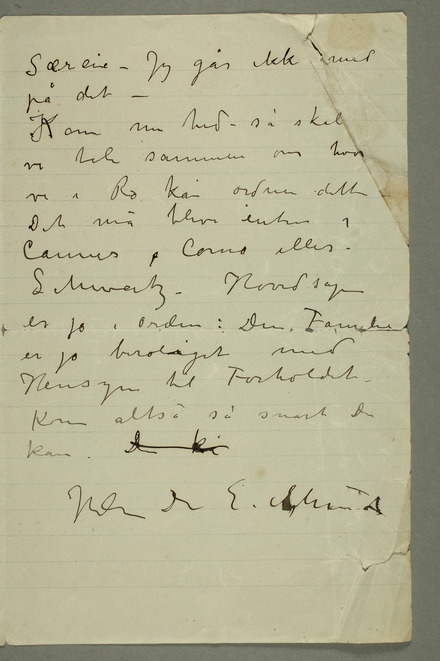 Særeie – Jeg går ikk med
på det –
Kom nu hid – så skal
vi tale sammen om hvor
vi i Ro kan ordne dette
Det må blive enten i
Cannes, Como eller
Schweitz – Hovedsagen
er jo i orden: Din Familie
er jo beroliget med
Hensyn til Forholdet –
Kom altså så snart Du
kan.
Din E. Munch